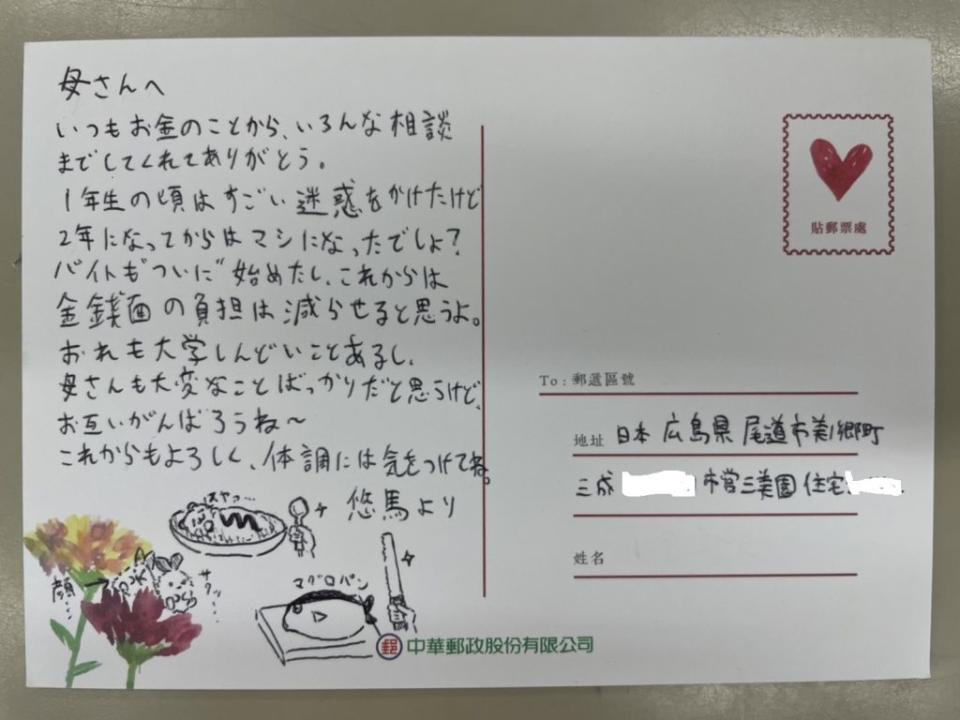 母さんへ
いつもお金のことから、いろんな相談
までしてくれてありがとう。
1年生の頃はすごい迷惑をかけたけど
2年になってからはマシになったでしょ?
バイトも"ついに"始めたし、これからは
金銭面の負担は減らせると思うよ。
おれも大学しんどいことあるし、
母さんも大変なことばっかりだと思うけど、
お互いがんばろうね〜
これからもよろしく、体調には気をつけてね。
悠馬より
スヤァ…
顔
サクッ…
マグロパン
中華郵政股份有限公司
貼郵票處
To : 郵遞區號
地址 日本 広島県 尾道市美ノ郷町
三成 市営三美園住宅
姓名